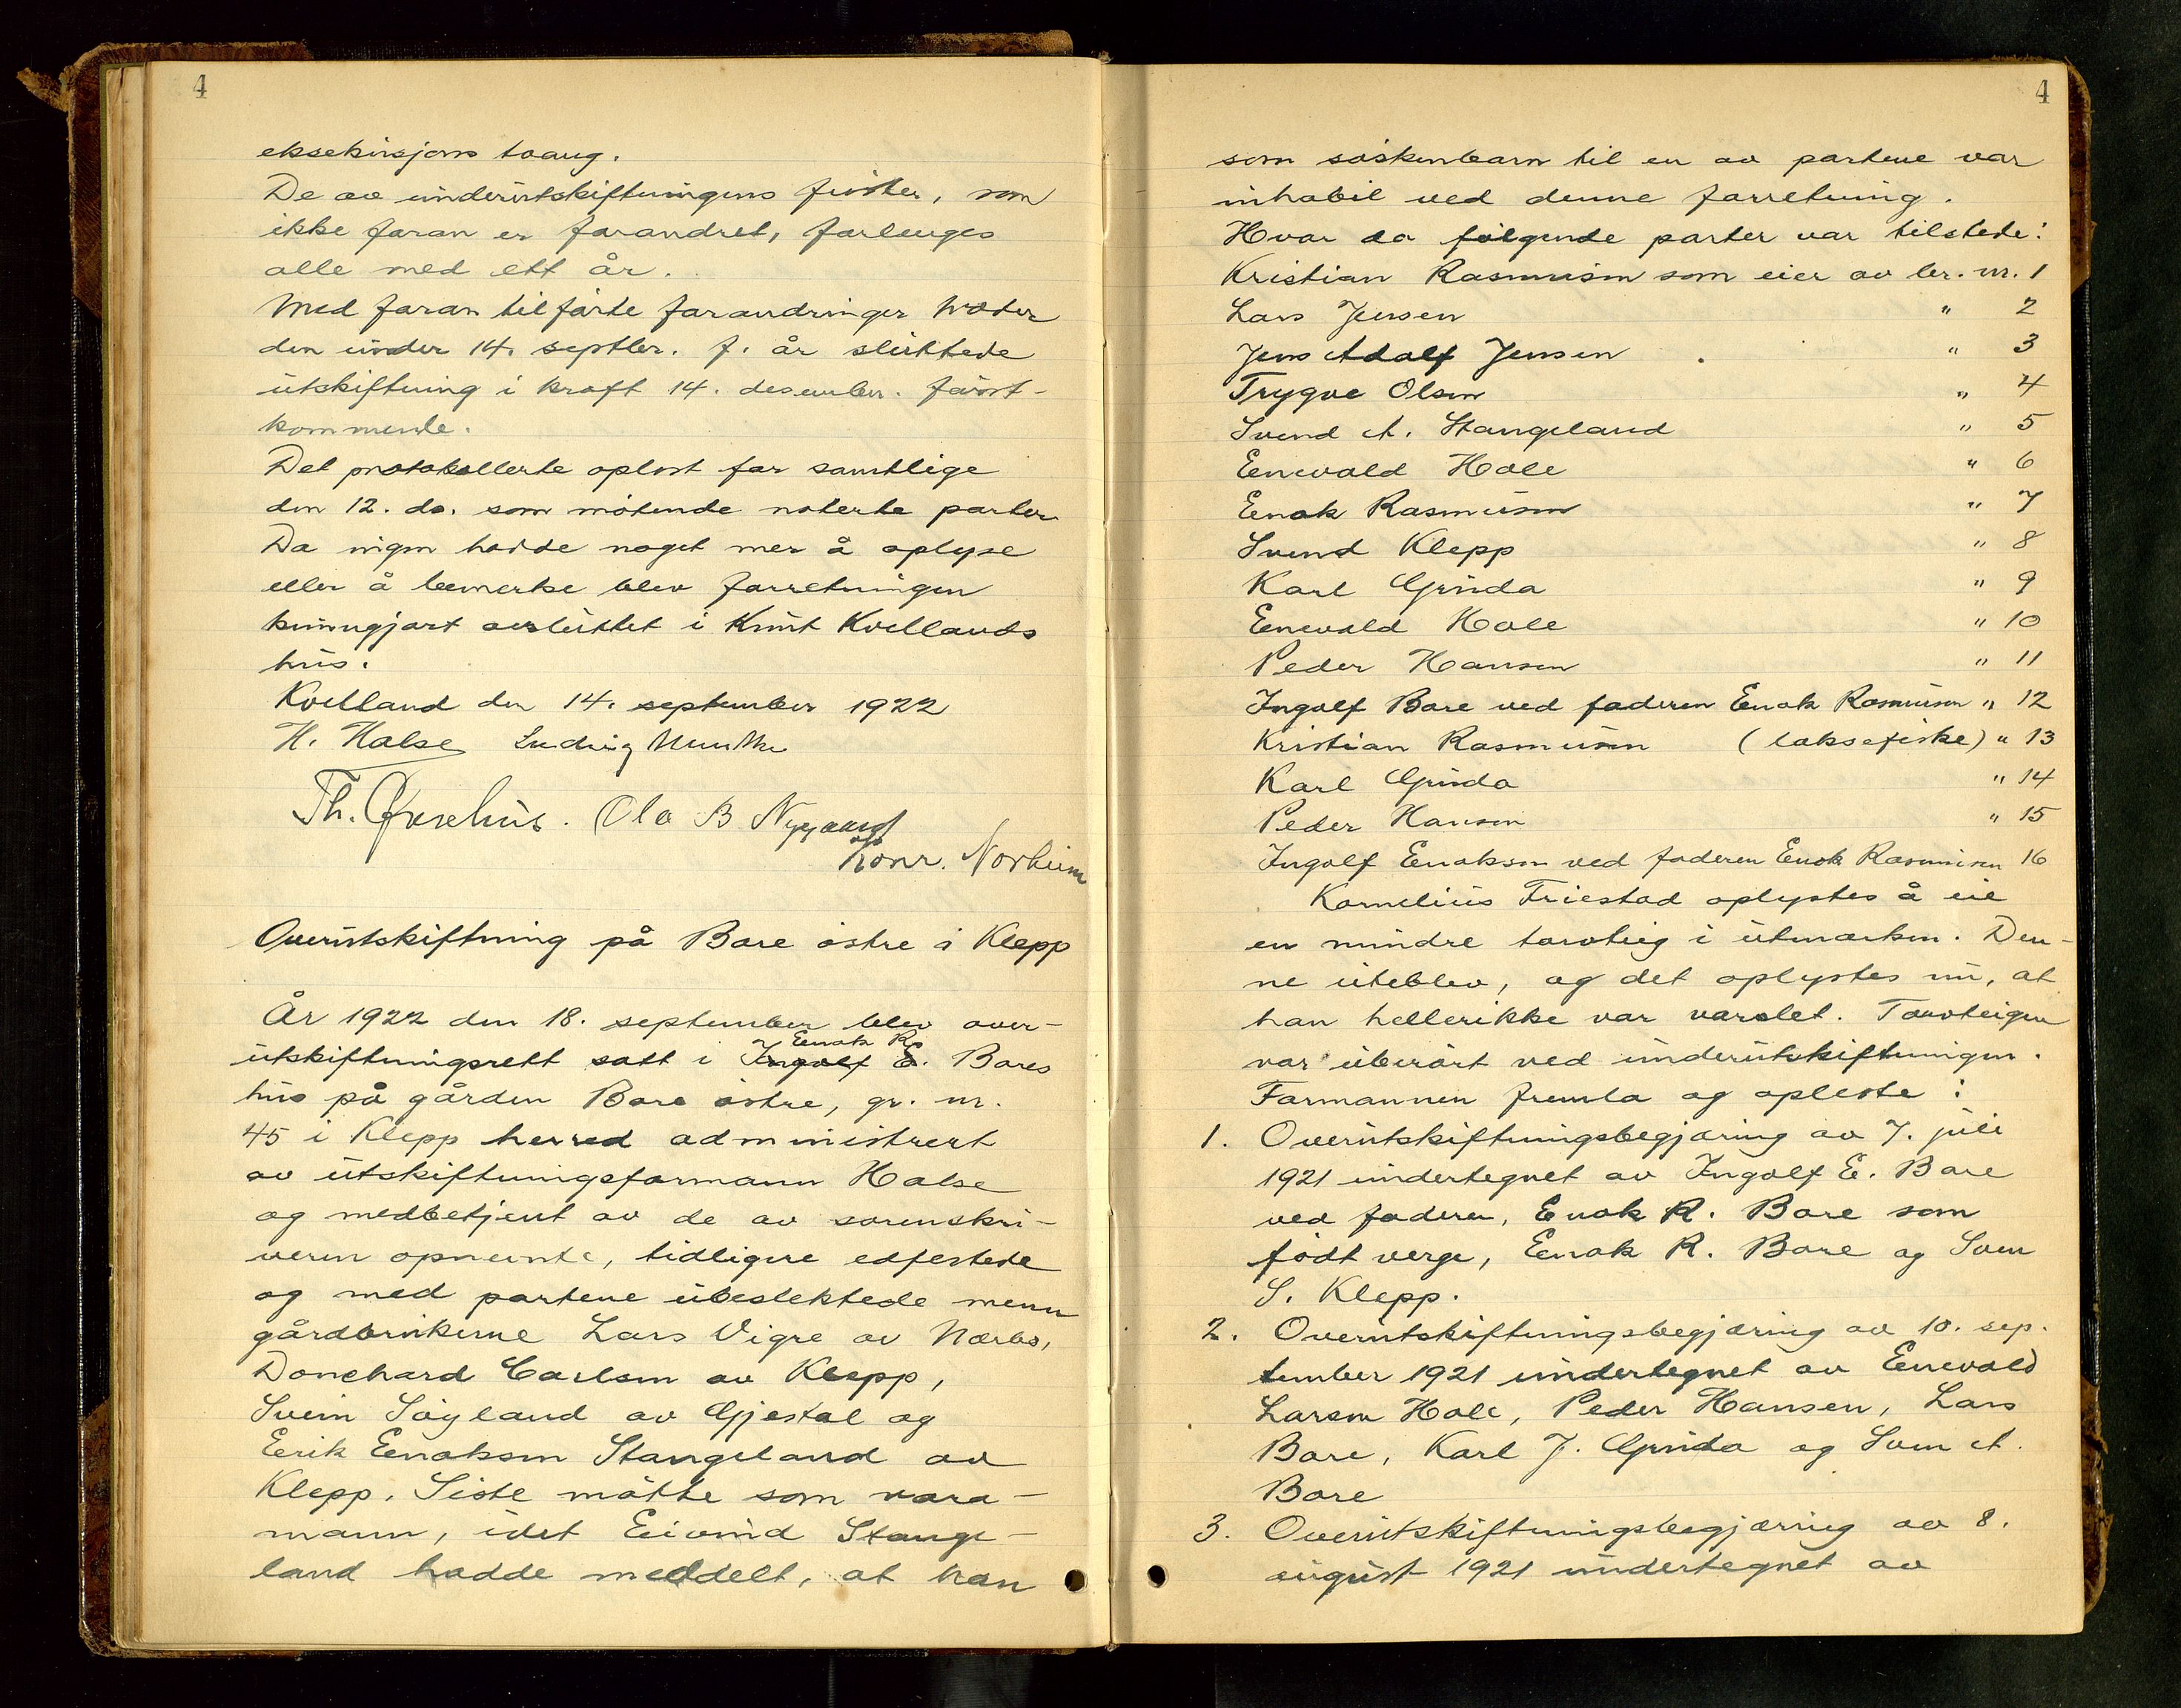 4
eksekusjons tvang.
De av underutskiftningens frister, som
ikke foran er forandret, forlenges
alle med ett år.
Med foran tilførte forandringer træder
den under 14. septbr. f. år sluttede
utskiftning i kraft 14. desember. først-
kommende.
Det protokollerte oplest for samtlige
den 12. ds. som møtende noterte parter
Da ingen hadde noget mer å oplyse
eller å bemerke blev forretningen
kunngjort avsluttet i Knut Kvellands
hus.
Kvelland den 14. september 1922
H. Halse Ludvig Munthe
Th. Ola B Nygaard
Konr. Norheim
Overutskiftning på Bore østre i Klepp
År 1922 den 18. september blev over-
Enok R.
utskiftningsrett satt i Ingolf E. Bores
hus på gården Bore østre, gr. nr.
45 i Klepp herred administrert
av utskiftningsformann Halse
og medbetjent av de av sorenskri-
veren opnevnte, tidligere edfestede
og med partene ubeslektede menn
gårdbrukerne Lars Vigre av Nærbø,
Donchard Carlsen av Klepp,
Svein Søyland av Gjestal og
Eerik Eenoksen Stangeland av
Klepp. Siste møtte som vara-
mann, idet Eivind Stange-
land hadde meddelt, at han
4
som søskenbarn til en av partene var
inhabil ved denne forretning.
Hvor da følgende parter var tilstede:
Kristian Rasmusen som eier av br. nr. 1
Lars Jensen " 2
Jens Adolf Jensen " 3
Trygve Olsen " 4
Svend A. Stangeland " 5
Eenevald Hole " 6
Eenok Rasmusen " 7
Svend Klepp " 8
Karl Grude " 9
Eenevald Hole " 10
Peder Hansen " 11
Ingolf Bore ved faderen Eenok Rasmusen " 12
Kristian Rasmusen (laksefiske) " 13
Karl Gruda " 14
Peder Hansen " 15
Ingolf Enoksen ved faderen Enok Rasmusen 16
Kornelius Friestad oplystes å eie
en mindre torvteig i utmarken. Den-
ne uteblev, og det oplystes nu, at
han hellerikke var varslet. Torvteigen
var uberørt ved underutskiftningen.
Formannen fremla og opleste:
1. Overutskiftningsbegjæring av 7. juli
1921 undertegnet av Ingolf E. Bore
ved faderen, Enok R. Bore som
født verge, Eenok R. Bore og Sven
S. Klepp.
2. Overutskiftningsbegjæring av 10. sep-
tember 1921 undertegnet av Eenevald
Larsen Hole, Peder Hansen, Lars
Bore, Karl J. Gruda og Sven A.
Bore
3. Overutskiftningsbegjæring av 8.
august 1921 undertegnet av